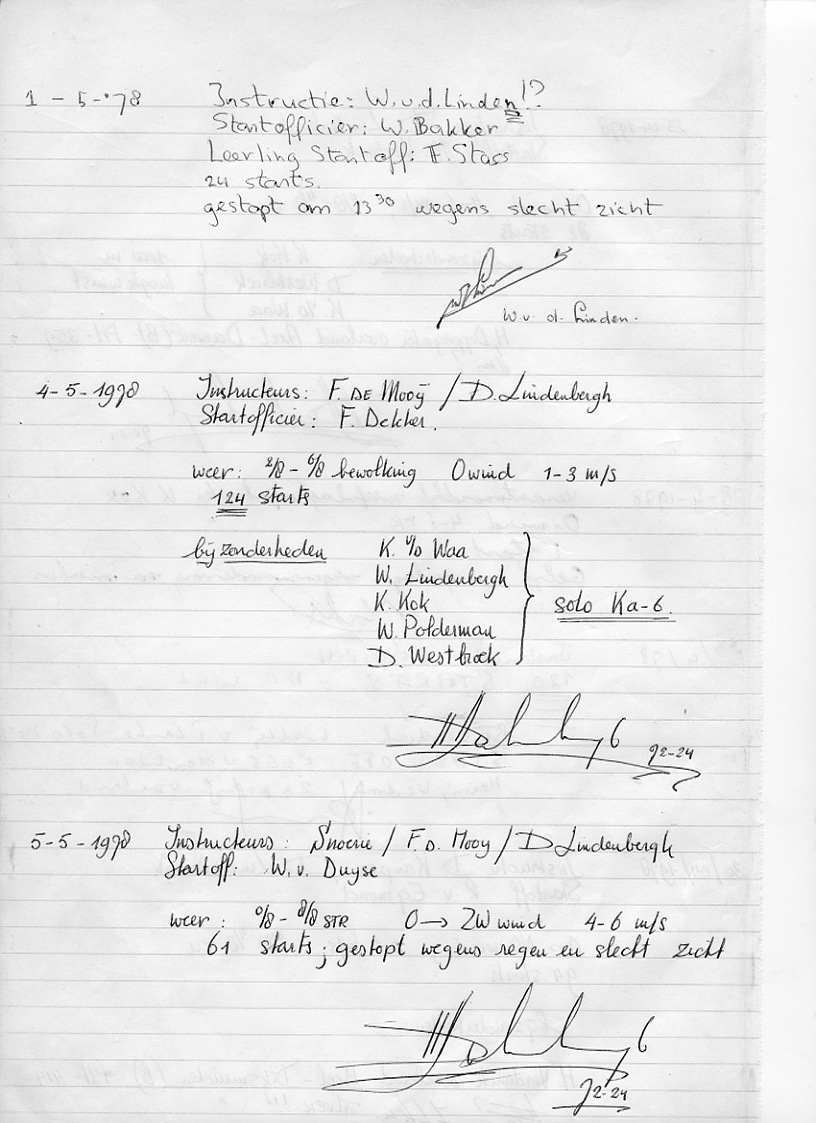 1 - 5 - '78 Instructie: W.v.d.Linden!?
Startofficier: W. Bakker
Leerling Startoff: F. Stass
24 starts.
gestopt om 13³⁰ wegens slecht zicht
W. v. d. Linden.
4-5-1978 Instructeurs: F. DE Mooÿ / D. Lindenbergh
Startofficier: F. Dekker.
weer: 2/8 - 6/8 bewolking O wind 1-3 m/s
124 starts
bijzonderheden K. v/o Waa
W. Lindenbergh
K. Kok
W. Polderman
D. Westbroek
solo Ka-6.
72-24
5-5-1978 Instructeurs: Snoerie / F. D. Mooy / D Lindenbergh
Startoff: W. v. Duyse
weer: 0/8 - 8/8 STR O → ZW wind 4-6 m/s
61 starts; gestopt wegens regen en slecht zicht
72-24